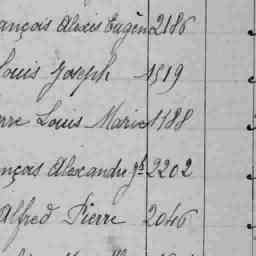 ançois Alexis Eugèn 2186
Louis Joseph 1519
rre Louis Marie 1188
nçois Alexandre jh 2202
Alfred Pierre 2046